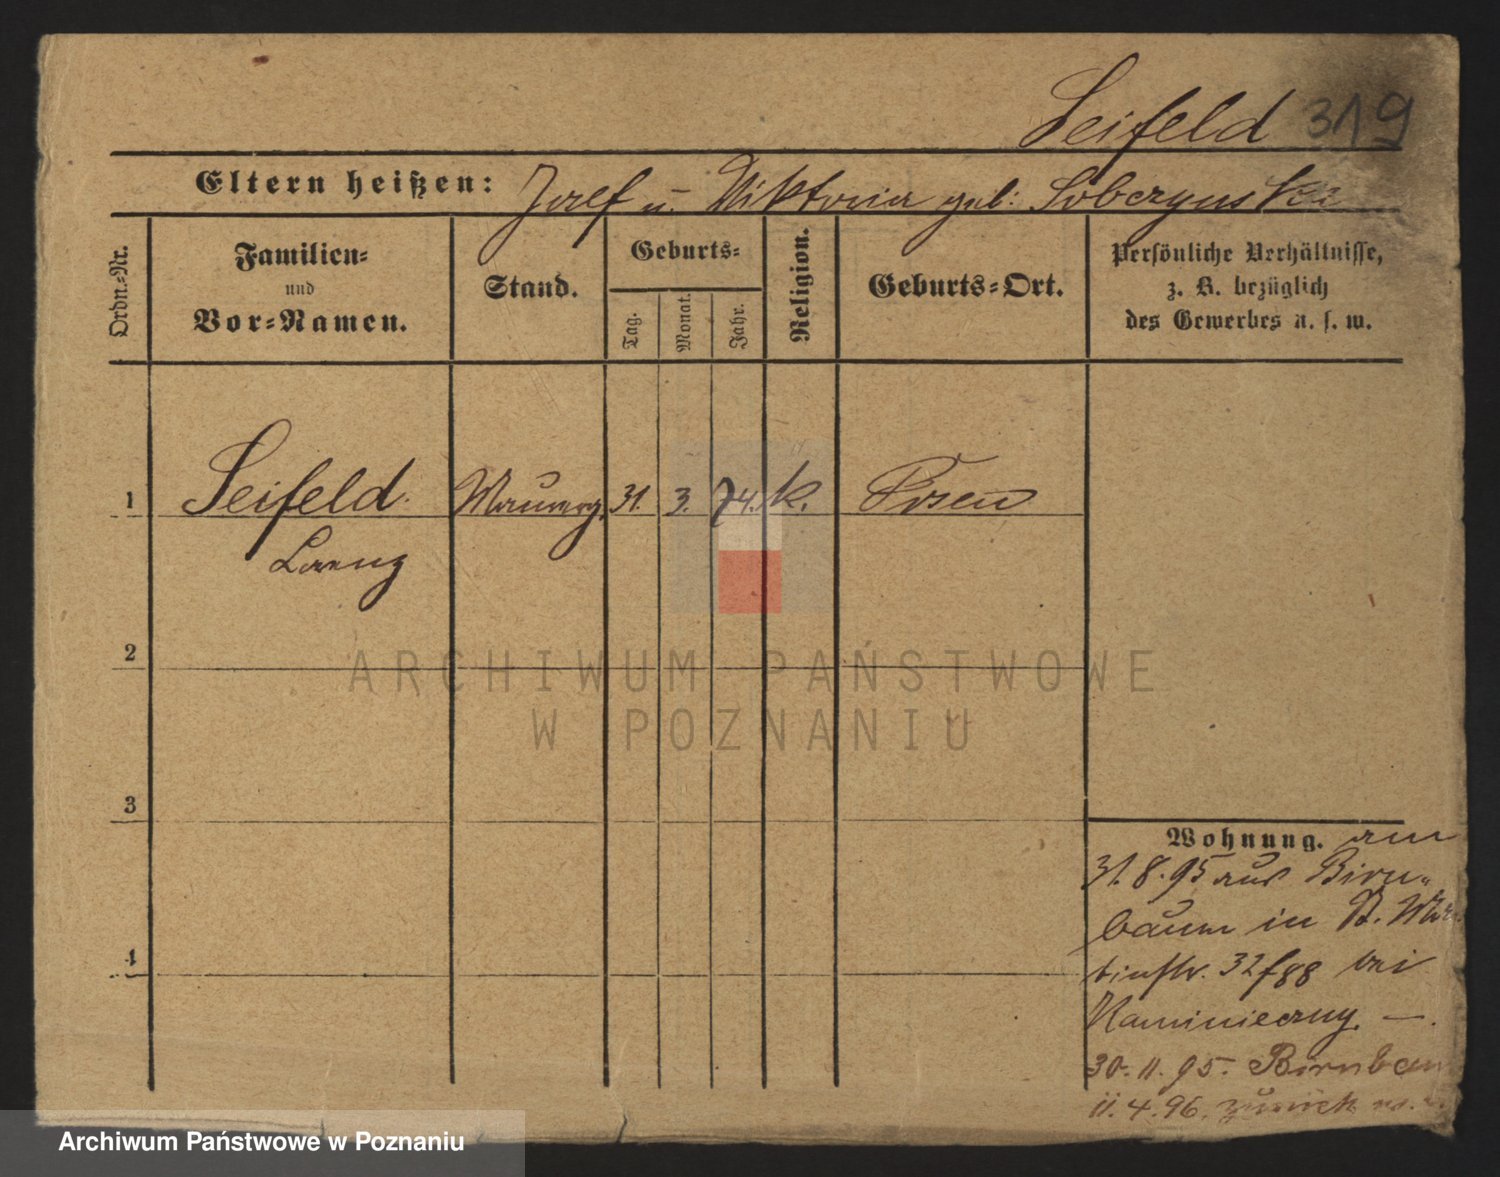 Seifeld 319
Eltern heißen: Josef u. Viktoria geb: Soberynska
Ordn.-Nr.
Familien-
und
Vor-Namen.
Stand.
Geburts-
Tag.
Monat.
Jahr.
Religion.
Geburts-Ort.
Persönliche Verhältnisse,
z. B. bezüglich
des Gewerbes u. s. w.
1 Seifeld Maurerg. 31. 3. 74. k. Posen
Lorenz
2
3
4
Wohnung. am
31.8.95 aus Birn-
baum in St. Mar
tinstr. 32 bei
30.11.95. Birnbaum
11.4.96. zurück
ARCHIWUM PAŃSTWOWE
W POZNANIU
Archiwum Państwowe w Poznaniu